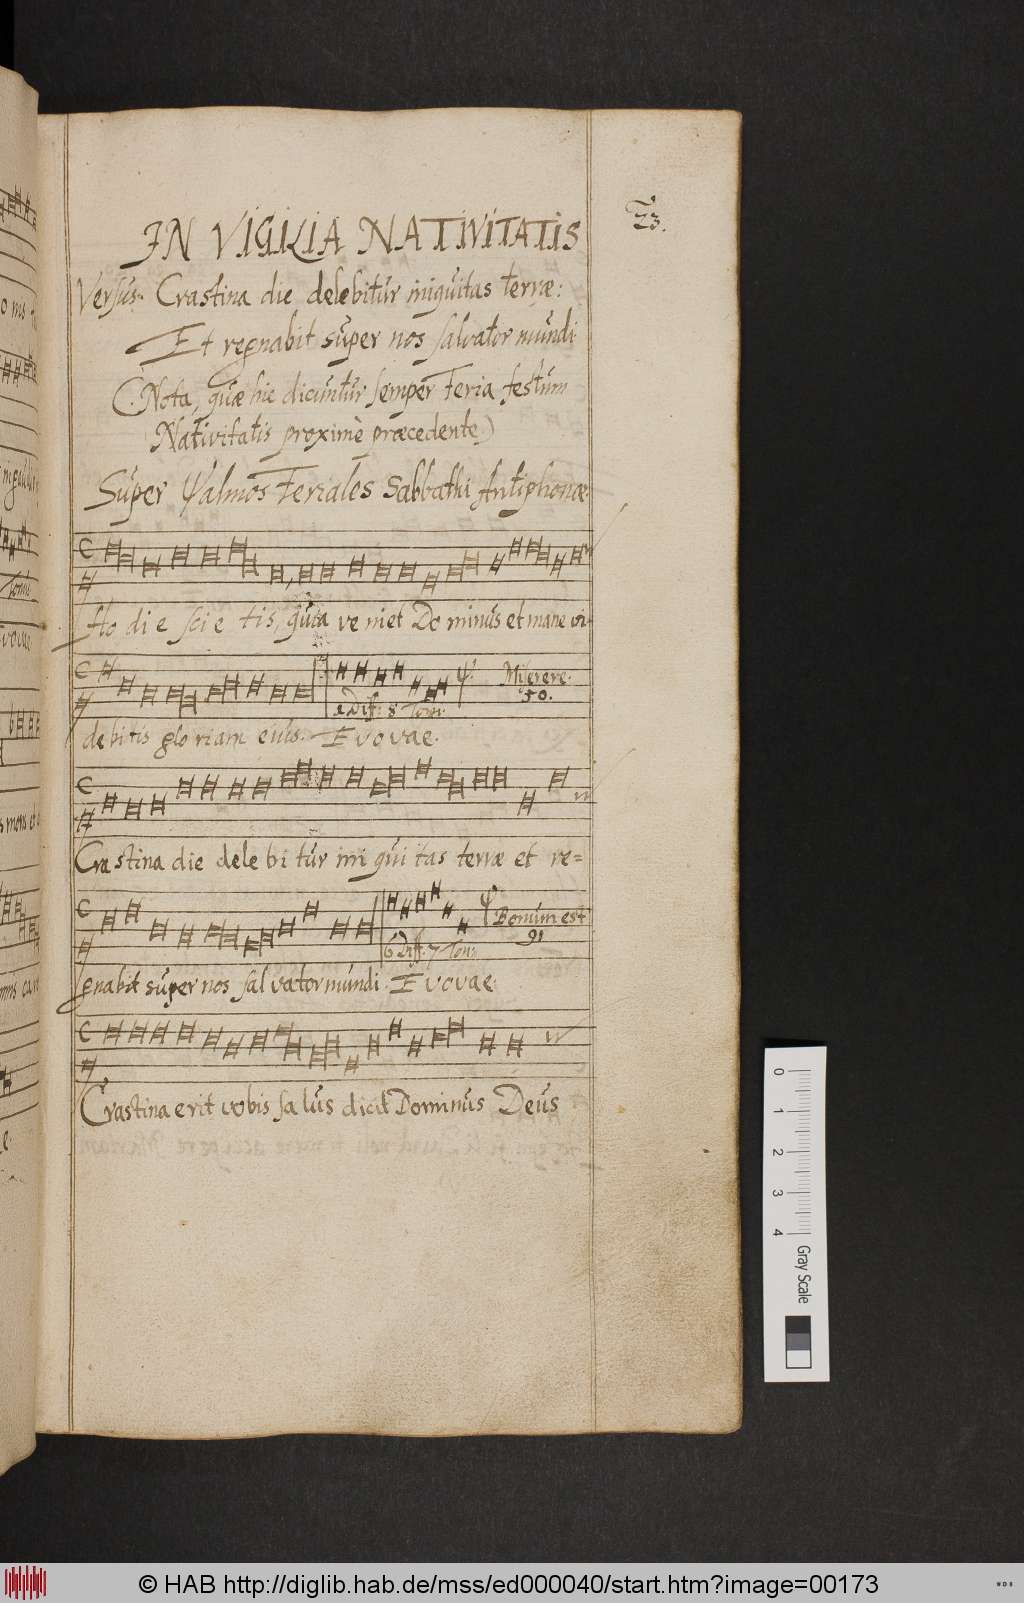 23.
IN VIGILIA NATIVITATIS
Versus. Crastina die delebitur iniquitas terræ:
Et regnabit super nos salvator mundi
(Nota, quæ hic dicuntur semper Feria festum
Nativitatis proximè præcedente)
Super Psalmos Feriales Sabbathi Antiphonæ
Ho di e sci e tis, quia ve niet Do minus et mane vi-
1 Diff: 8 Tom: Ψ. Miserere.
50.
debitis glo riam eius. E v o v a e.
Crastina die dele bi tur ini qui tas terræ et re=
6 Diff. 7 Ton: Ψ. Bonum est
91
gnabit super nos sal vator mundi. E v o v a e.
Crastina erit vobis sa lus dicit Dominus Deus
0 1 2 3 4 Gray Scale
© HAB http://diglib.hab.de/mss/ed000040/start.htm?image=00173